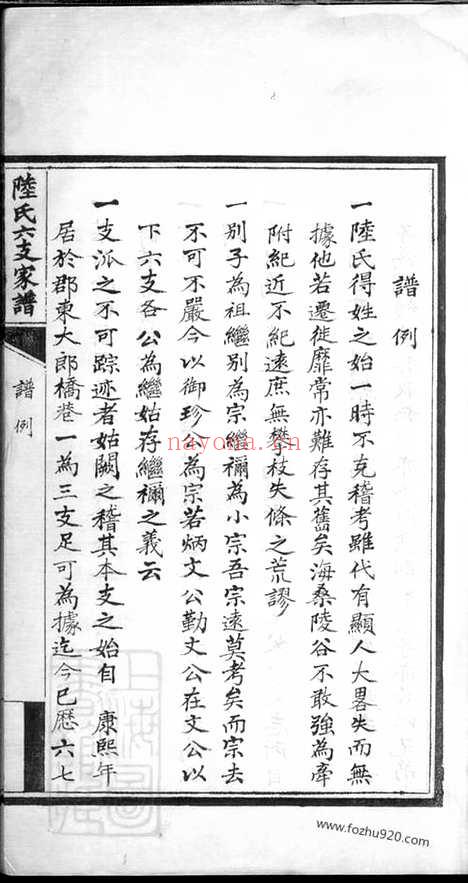 譜例
一陸氏得姓之始一時不克稽考雖代有顯人大畧失而無
據他若遷徙靡常亦難存其舊矣海桑陵谷不敢強為牽
附紀近不紀遠庶無攀枝失條之荒謬
一別子為祖繼別為宗繼禰為小宗吾宗遠莫考矣而宗去
不可不嚴今以御珍公為宗若炳文公勤文公在文公以
下六支各公為繼姑存繼禰之義云
一支派之不可踪迹者姑闕之稽其本支之始自 康熙年
居於郡東大郎橋巷一為三支足可為據迄今已歷六七
陸氏六支家譜
譜例
nayona.cn
www.fozhu920.com